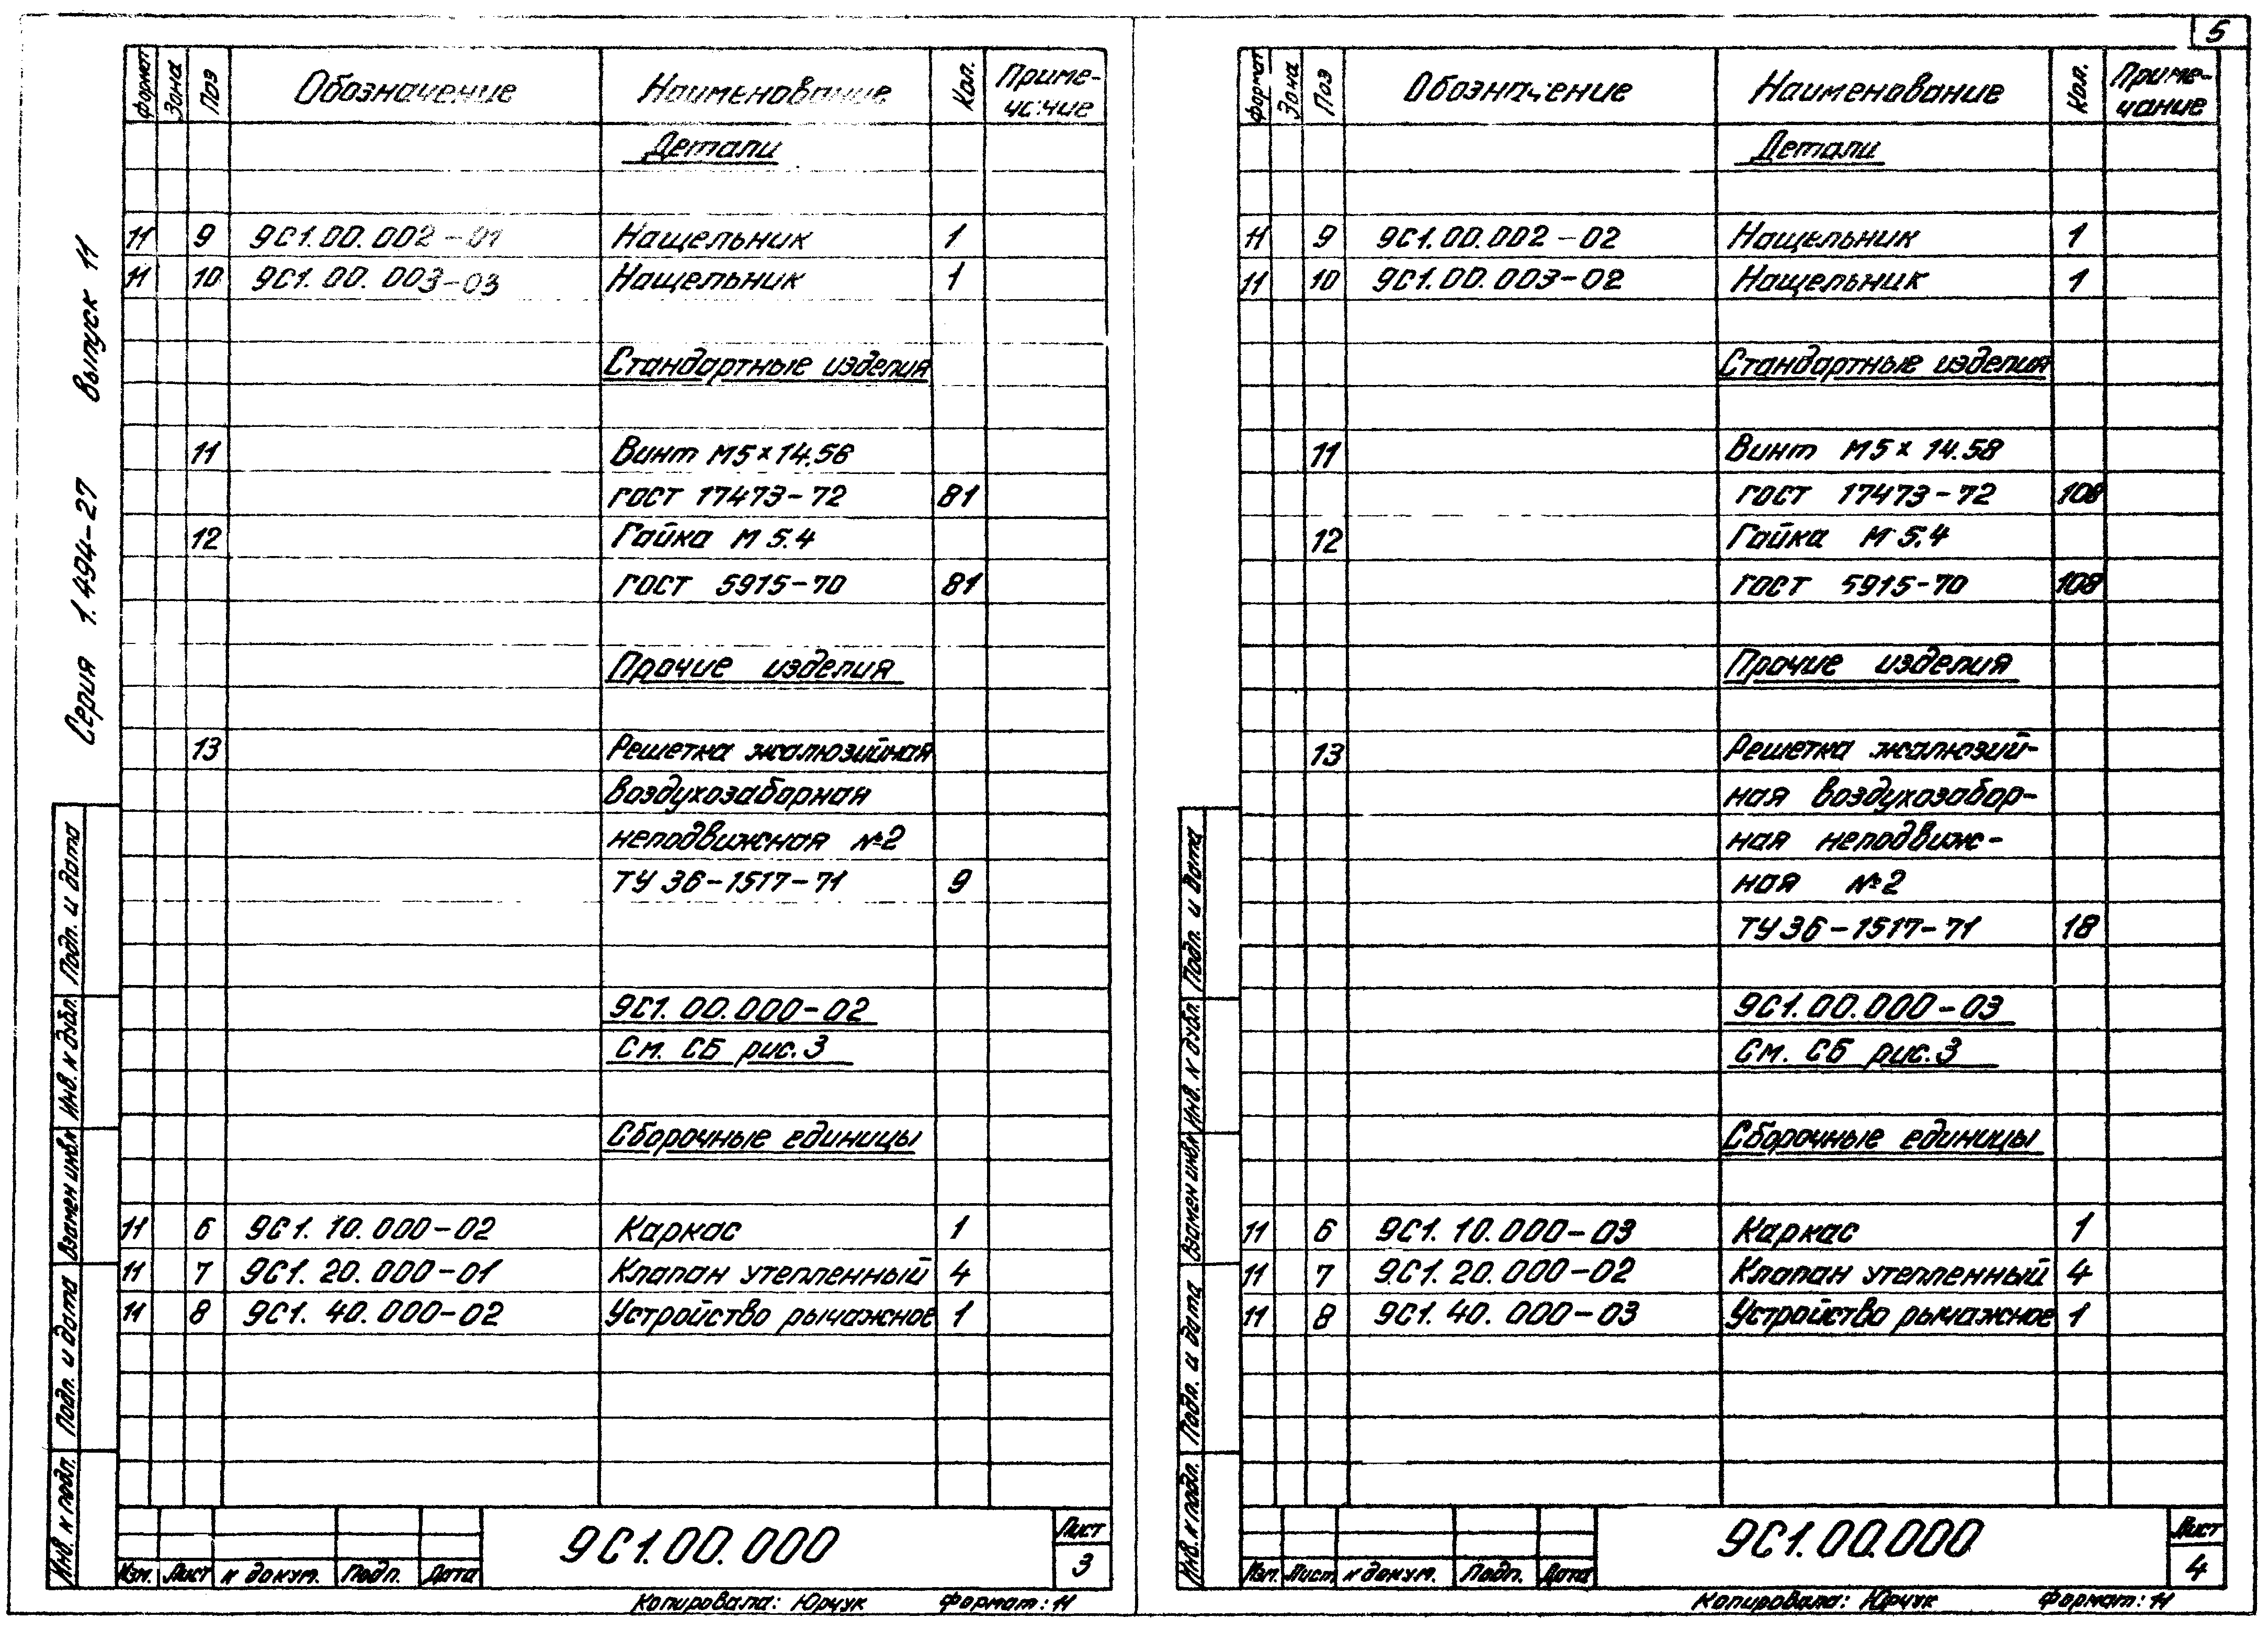 5
Серия 1.494-27 Выпуск 11
Формат Зона Поз Обозначение Наименование Кол. Приме-
чание
Детали
11 9 9С1.00.002-01 Нащельник 1
11 10 9С1.00.003-03 Нащельник 1
Стандартные изделия
11 Винт М5х14.56
ГОСТ 17473-72 81
12 Гайка М 5.4
ГОСТ 5915-70 81
Прочие изделия
13 Решетка жалюзийная
воздухозаборная
неподвижная №2
ТУ 36-1517-71 9
9С1.00.000-02
См. СБ рис.3
Сборочные единицы
11 6 9С1.10.000-02 Каркас 1
11 7 9С1.20.000-01 Клапан утепленный 4
11 8 9С1.40.000-02 Устройство рычажное 1
Подп. и дата
Инв. № дубл.
Взамен инв.№
Подп. и дата
Инв. № подл.
Изм. Лист № докум. Подп. Дата
9С1.00.000
Лист
3
Копировала: Юрчук Формат: 11
Формат Зона Поз Обозначение Наименование Кол. Приме-
чание
Детали
11 9 9С1.00.002-02 Нащельник 1
11 10 9С1.00.003-02 Нащельник 1
Стандартные изделия
11 Винт М5х14.58
ГОСТ 17473-72 108
12 Гайка М 5.4
ГОСТ 5915-70 108
Прочие изделия
13 Решетка жалюзий-
ная воздухозабор-
ная неподвиж-
ная №2
ТУ 36-1517-71 18
9С1.00.000-03
См. СБ рис.3
Сборочные единицы
11 6 9С1.10.000-03 Каркас 1
11 7 9С1.20.000-02 Клапан утепленный 4
11 8 9С1.40.000-03 Устройство рычажное 1
Подп. и дата
Инв. № дубл.
Взамен инв.№
Подп. и дата
Инв. № подл.
Изм. Лист № докум. Подп. Дата
9С1.00.000
Лист
4
Копировала: Юрчук Формат: 11